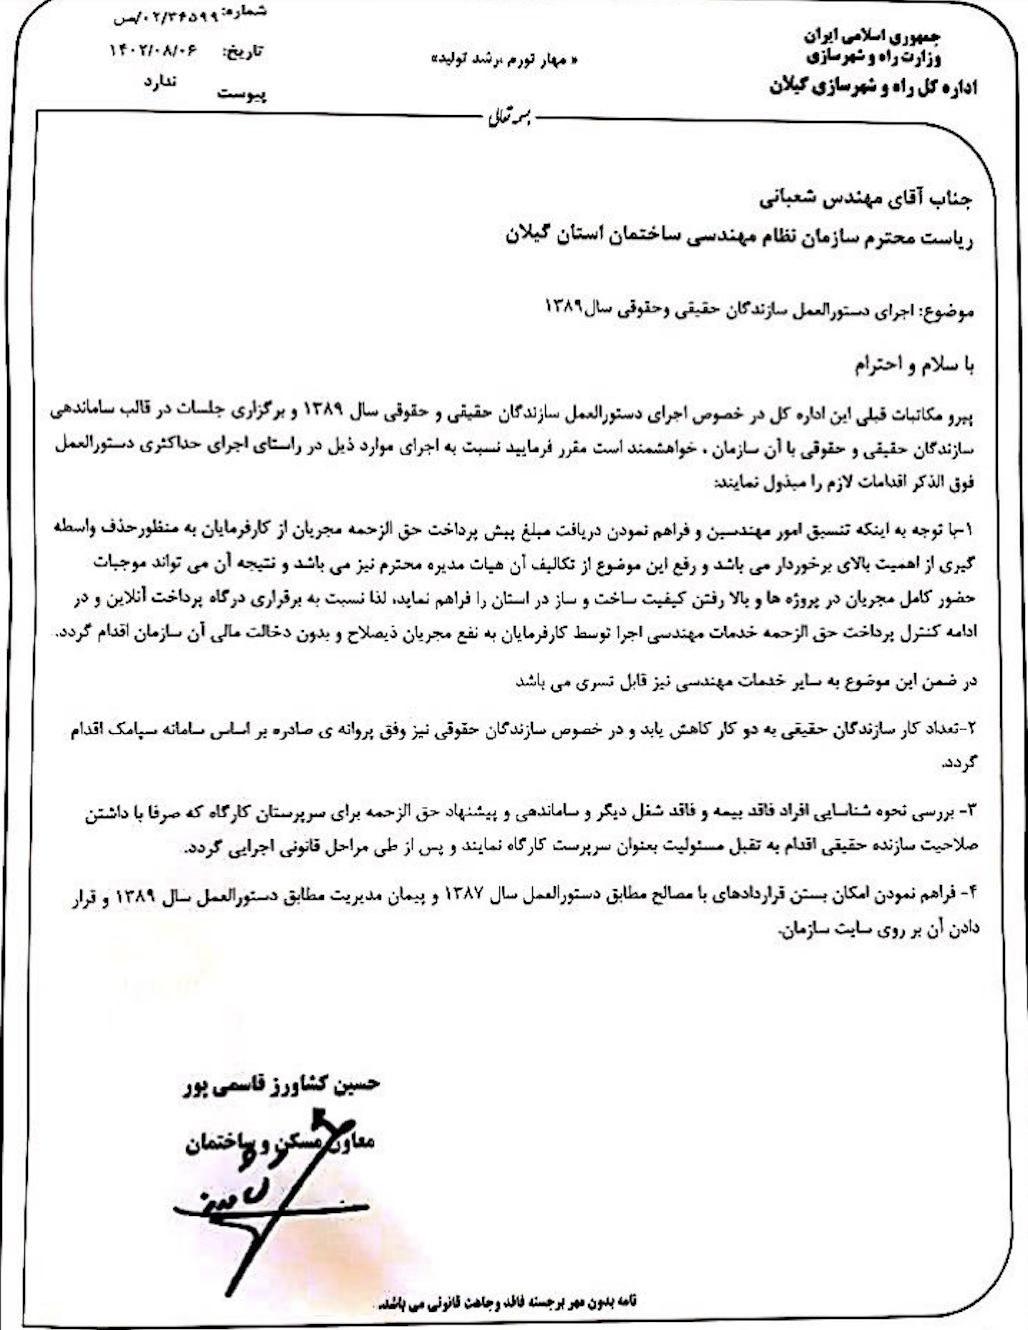 جمهوری اسلامی ایران
وزارت راه و شهرسازی
اداره کل راه و شهرسازی گیلان
« مهار تورم ،رشد تولید»
شماره: ۰۲/۳۴۵۹۹/ص
تاریخ: ۱۴۰۲/۰۸/۰۶
پیوست ندارد
بسمه تعالی
جناب آقای مهندس شعبانی
ریاست محترم سازمان نظام مهندسی ساختمان استان گیلان
موضوع: اجرای دستورالعمل سازندگان حقیقی وحقوقی سال۱۳۸۹
با سلام و احترام
پیرو مکاتبات قبلی این اداره کل در خصوص اجرای دستورالعمل سازندگان حقیقی و حقوقی سال ۱۳۸۹ و برگزاری جلسات در قالب ساماندهی
سازندگان حقیقی و حقوقی با آن سازمان ، خواهشمند است مقرر فرمایید نسبت به اجرای موارد ذیل در راستای اجرای حداکثری دستورالعمل
فوق الذکر اقدامات لازم را مبذول نمایند:
۱-با توجه به اینکه تنسیق امور مهندسین و فراهم نمودن دریافت مبلغ پیش پرداخت حق الزحمه مجریان از کارفرمایان به منظورحذف واسطه
گیری از اهمیت بالای برخوردار می باشد و رفع این موضوع از تکالیف آن هیات مدیره محترم نیز می باشد و نتیجه آن می تواند موجبات
حضور کامل مجریان در پروژه ها و بالا رفتن کیفیت ساخت و ساز در استان را فراهم نماید، لذا نسبت به برقراری درگاه پرداخت آنلاین و در
ادامه کنترل پرداخت حق الزحمه خدمات مهندسی اجرا توسط کارفرمایان به نفع مجریان ذیصلاح و بدون دخالت مالی آن سازمان اقدام گردد.
در ضمن این موضوع به سایر خدمات مهندسی نیز قابل تسری می باشد
۲-تعداد کار سازندگان حقیقی به دو کار کاهش یابد و در خصوص سازندگان حقوقی نیز وفق پروانه ی صادره بر اساس سامانه سپامک اقدام
گردد.
۳- بررسی نحوه شناسایی افراد فاقد بیمه و فاقد شغل دیگر و ساماندهی و پیشنهاد حق الزحمه برای سرپرستان کارگاه که صرفا با داشتن
صلاحیت سازنده حقیقی اقدام به تقبل مسئولیت بعنوان سرپرست کارگاه نمایند و پس از طی مراحل قانونی اجرایی گردد.
۴- فراهم نمودن امکان بستن قراردادهای با مصالح مطابق دستورالعمل سال ۱۳۸۷ و پیمان مدیریت مطابق دستورالعمل سال ۱۳۸۹ و قرار
دادن آن بر روی سایت سازمان.
حسین کشاورز قاسمی پور
معاون مسکن و ساختمان
نامه بدون مهر برجسته فاقد وجاهت قانونی می باشد.